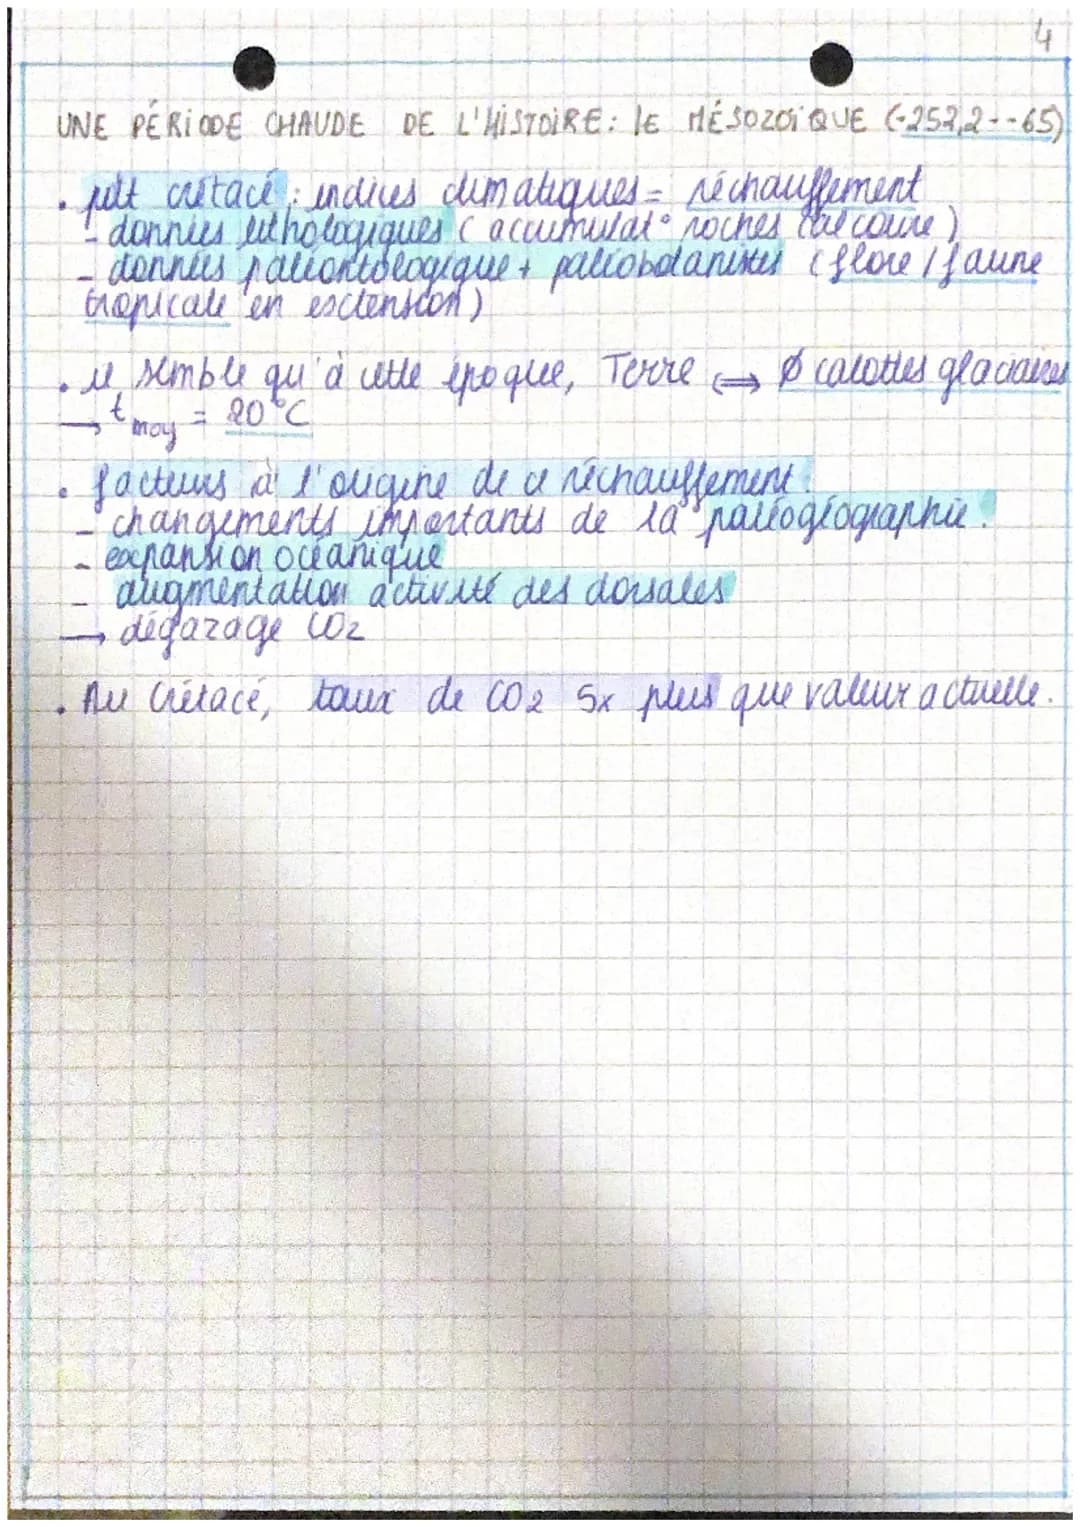 4
UNE PÉRIODE CHAUDE DE L'HISTOIRE : LE MÉSOZOÏQUE (-252,2 - -65)
• pdt crétacé : indices climatiques = réchauffement
- données lithologiques (accumulat° roches calcaire)
- données paléontologique + paléobotanistes (flore / faune
tropicale en esctension)
• il semble qu'à cette époque, Terre ⇔ Ø calottes glaciaires
→ tmoy = 20°C
• facteurs à l'origine de ce réchauffement :
- changements importants de la paléogéographie.
- expansion océanique
- augmentation activité des dorsales
→ dégazage CO2
• Au Crétacé, taux de CO2 5x plus que valeur actuelle.